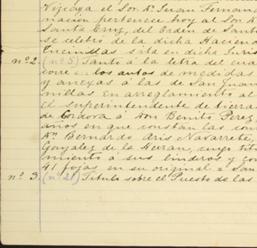 Vizcaya el Sor. Dn. Juan Fernan
nacion pertenece hoy al Sor. D
Santa Cruz, del Orden de Santi
se titula de la dicha Hacienda
Encinillas site en dicha Juris
no 2. (no 5) Tanto á la letra del cua
corre en los autos de medidas
y anexas á las de San Juan
millas en arreglamiento de
el superintendente de tierras
de Córdova á Don Benito Perez
años en que constan las con
Dn. Bernardo Aris Navarrete,
Gonzalez de la Heran, cuyo titu
miento á sus linderos y go
41 fojas en su original á San
no 3. (no 21) Titulo sobre el Puesto de las